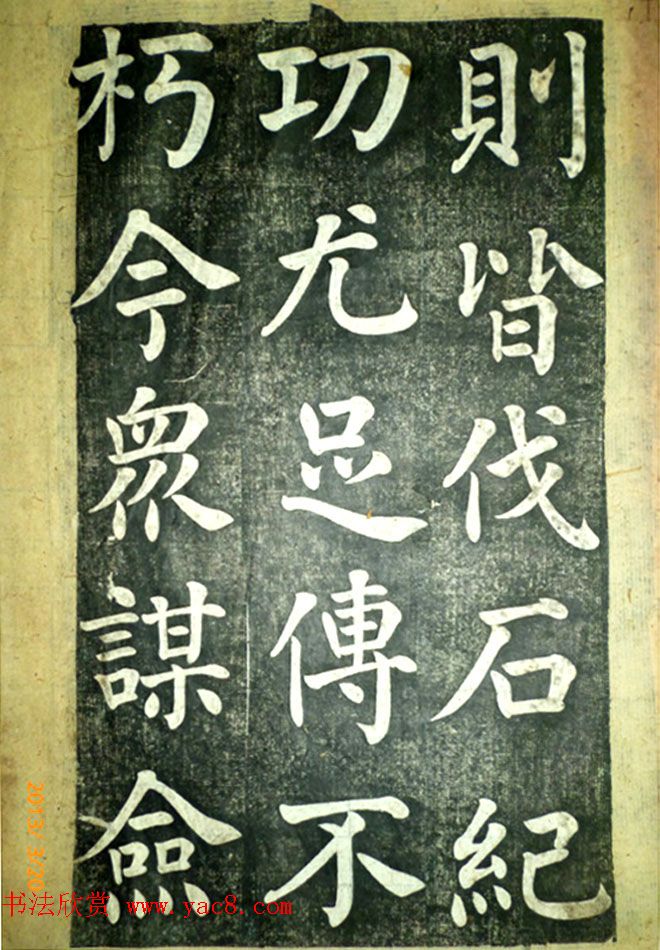 則皆伐石紀
功尤足傳不
朽今眾謀僉
2013/ 3/20
书法欣赏 www.yac8.com